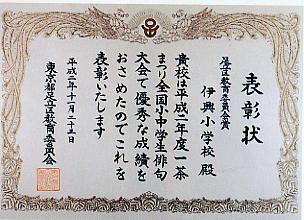 表彰状
足立区教育委員会賞
伊興小学校 殿
貴校は平成二年度一茶
まつり全国小中学生俳句
大会で優秀な成績を
おさめたのでこれを
表彰いたします
平成二年十一月二十三日
東京都足立区教育委員会